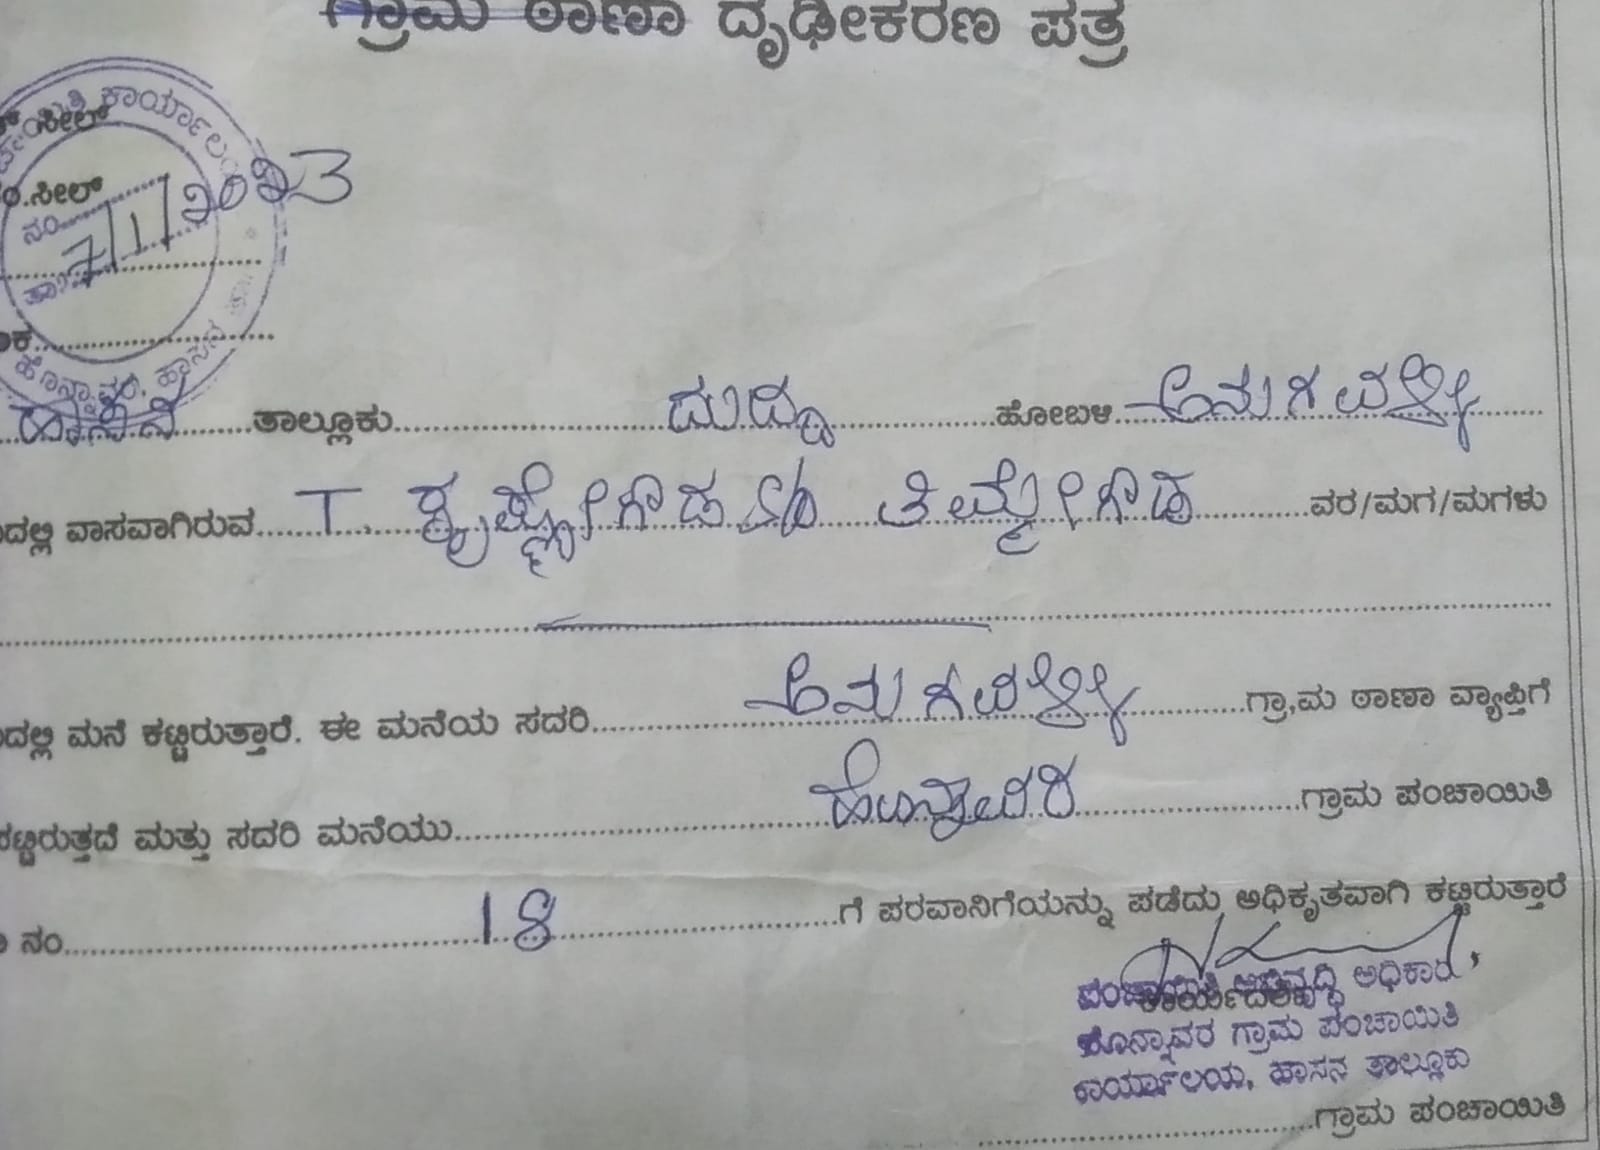 ಗ್ರಾಮ ಠಾಣಾ ದೃಢೀಕರಣ ಪತ್ರ
ಕಾರ್ಯಾಲಯ
ಸೀಲ್
ಸೀಲ್
ನಂ
7/1/2023
ತಾ
ಹೊನ್ನಾವರ, ಹಾಸನ
ಹಾಸನ ತಾಲ್ಲೂಕು ದುದ್ದ ಹೋಬಳಿ
ವಾಸವಾಗಿರುವ T. ಕೃಷ್ಣೇಗೌಡ S/o ತಿಮ್ಮೇಗೌಡ ವರ/ಮಗ/ಮಗಳು
ಮನೆ ಕಟ್ಟಿರುತ್ತಾರೆ. ಈ ಮನೆಯ ಸದರಿ ಗ್ರಾ,ಮ ಠಾಣಾ ವ್ಯಾಪ್ತಿಗೆ
ಮತ್ತು ಸದರಿ ಮನೆಯು ಹೊನ್ನಾವರ ಗ್ರಾಮ ಪಂಚಾಯಿತಿ
ನಂ 18 ಗೆ ಪರವಾನಿಗೆಯನ್ನು ಪಡೆದು ಅಧಿಕೃತವಾಗಿ ಕಟ್ಟಿರುತ್ತಾರೆ
ಪಂಚಾಯಿತಿ ಅಭಿವೃದ್ಧಿ ಅಧಿಕಾರಿ
ಹೊನ್ನಾವರ ಗ್ರಾಮ ಪಂಚಾಯಿತಿ
ಕಾರ್ಯಾಲಯ, ಹಾಸನ ತಾಲ್ಲೂಕು
ಗ್ರಾಮ ಪಂಚಾಯಿತಿ